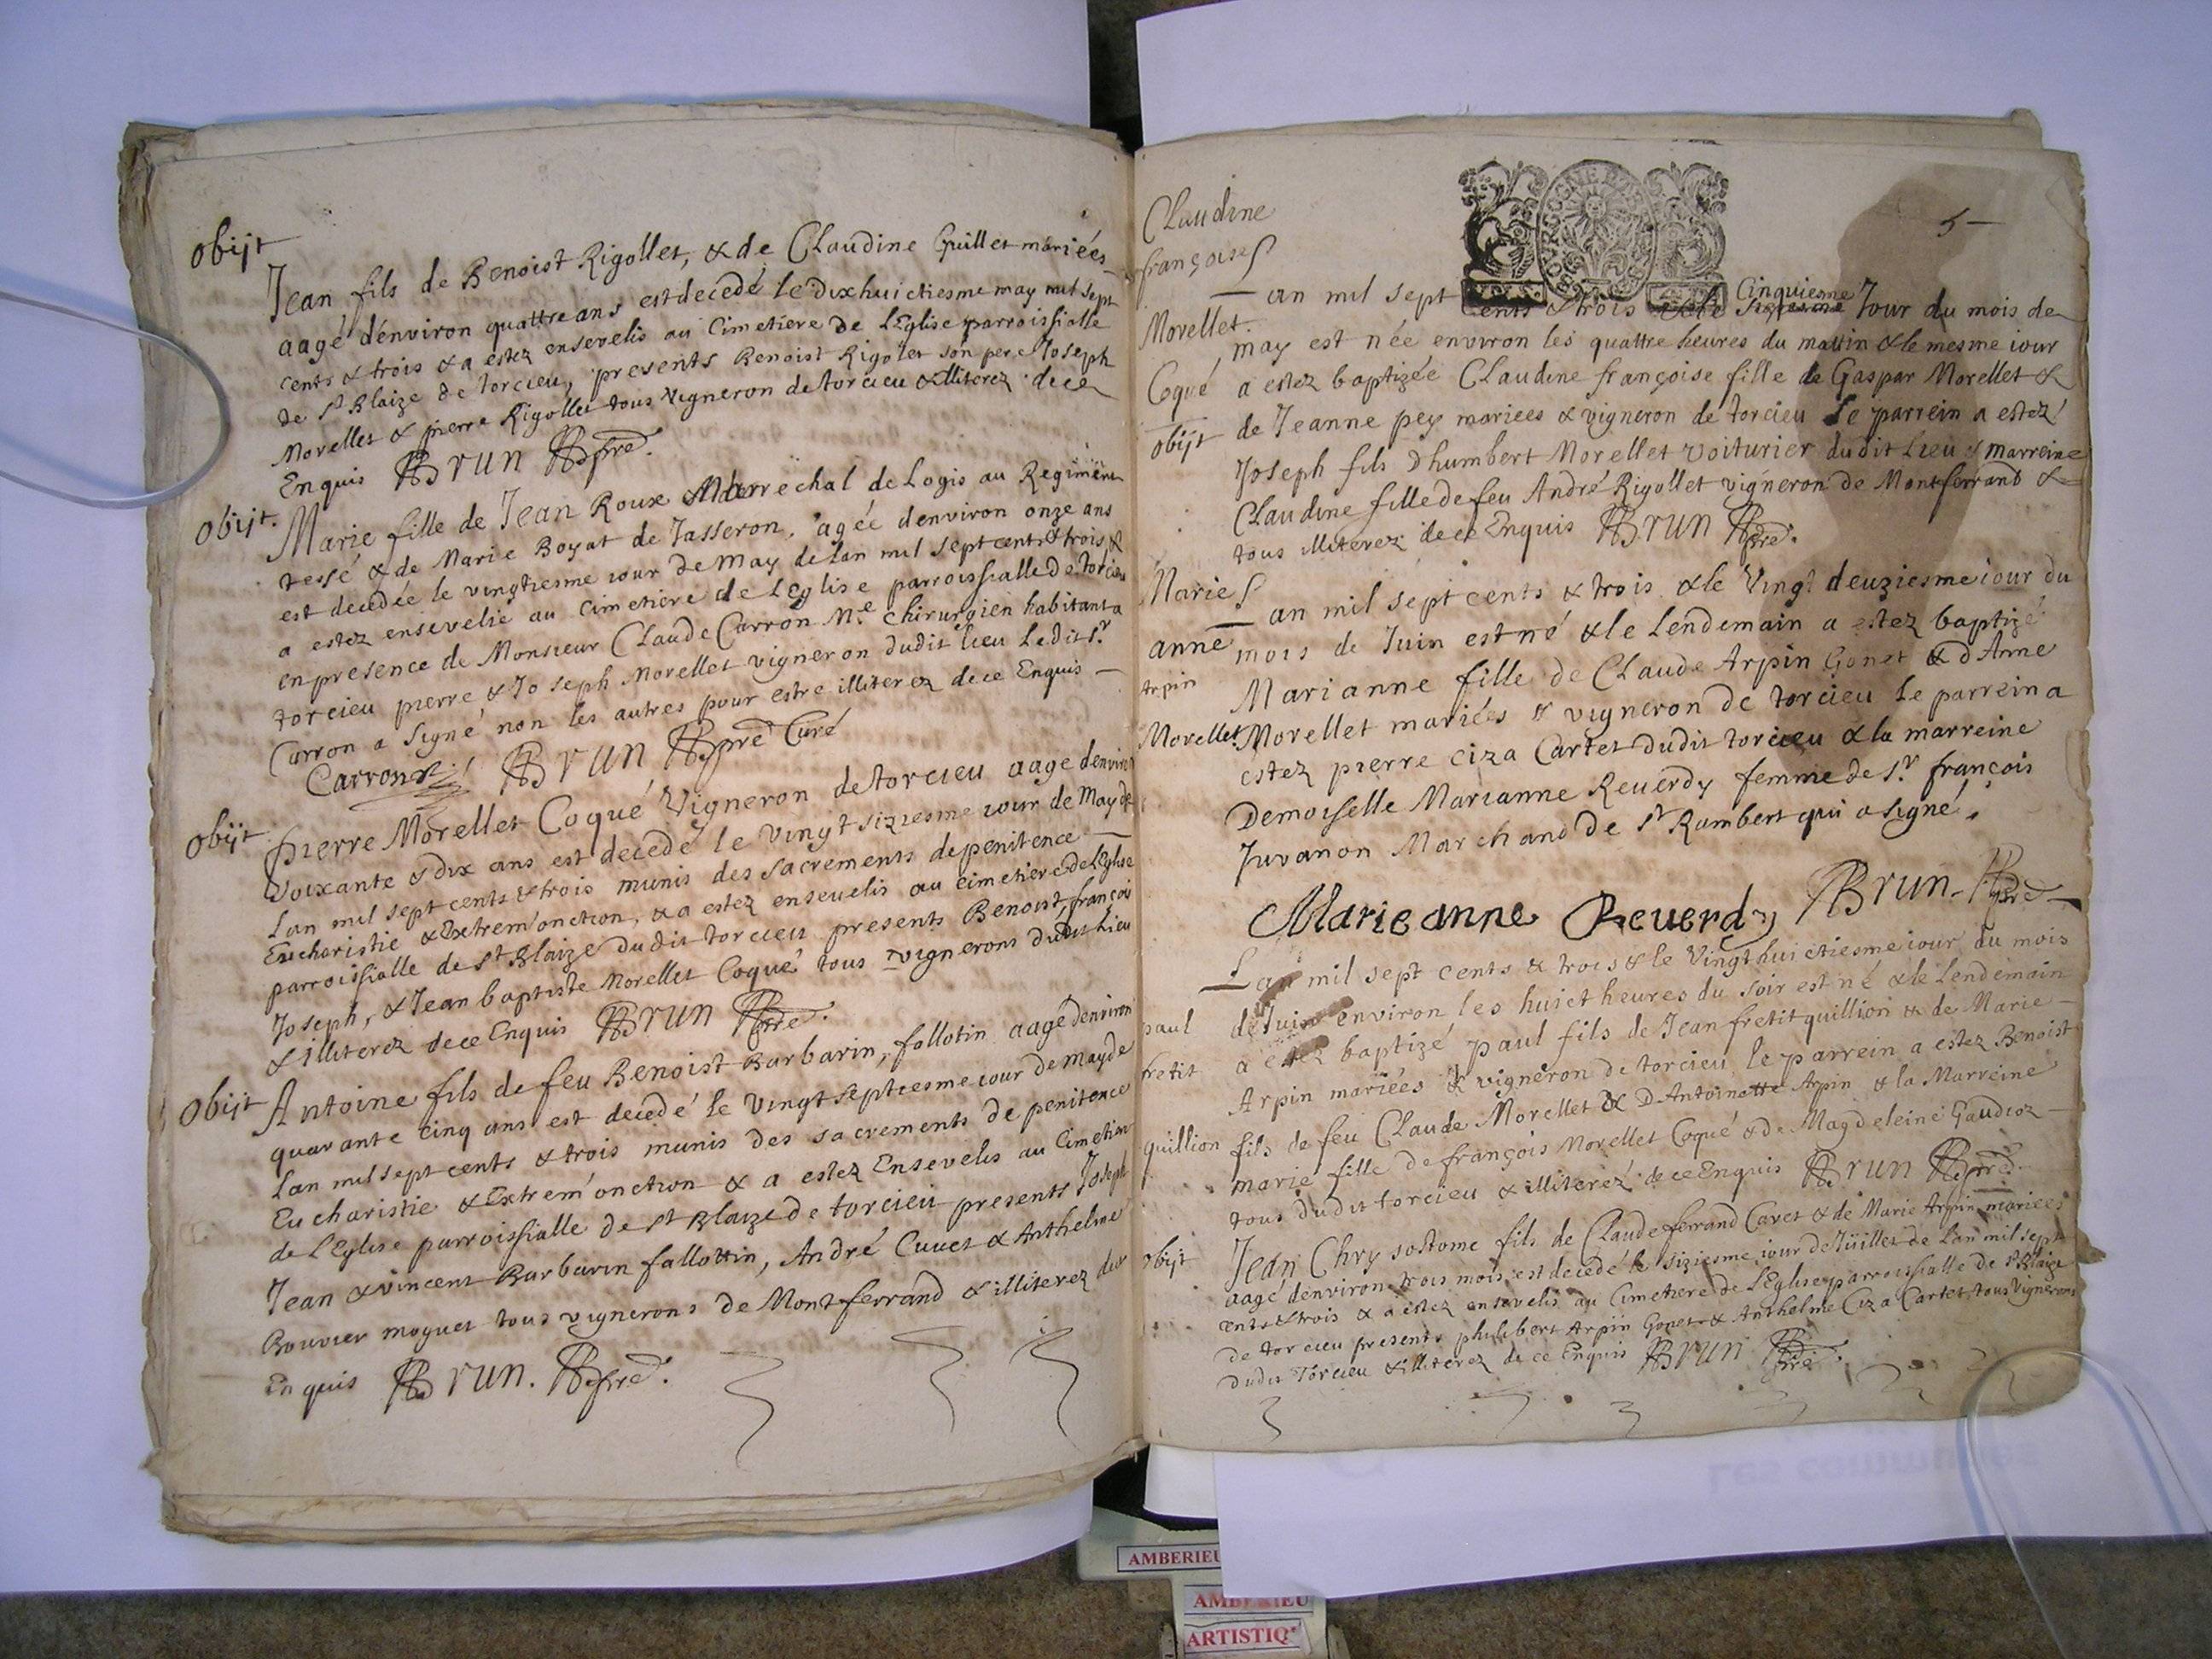 obijt
Jean fils de Benoist Rigollet, & de Claudine Guillet mariées
aagé d'environ quattre ans est decedé le dixhuictiesme may mil sept
cents & trois & a estez ensevelis au Cimetiere de l'Eglise parroissialle
de St Blaize de torcieu, presents Benoist Rigolet son pere Joseph
Morellet & pierre Rigollet tous vigneron de torcieu & illiterez de ce
Enquis Brun pre.
obijt.
Marie fille de Jean Roux Marrechal de Logis au Regiment
tessé & de Marie Boyat de Jasseron, agée d'environ onze ans
est decedée le vingtiesme iour de May de lan mil sept cents & trois &
a estez ensevelie au Cimetiere de l'Eglise parroissialle de torcieu
en presence de Monsieur Claude Carron Me Chirurgien habitant a
torcieu pierre & Joseph Morellet vigneron dudit lieu Ledit Sr
Carron a signé non les autres pour estre illiterez de ce Enquis
Carron Brun pre Curé
obijt
Pierre Morellet Coqué Vigneron de torcieu aagé d'environ
soixante & dix ans est decedé le vingt siziesme iour de May de
Lan mil sept cents & trois munis des sacrements de penitence
Eucharistie & Extrem'onction, & a estez ensevelis au cimetiere de l'Eglise
parroissialle de St Blaize dudit torcieu presents Benoist, françois
Joseph, & Jean baptiste Morellet Coqué tous vignerons dudit lieu
& illiterez de ce Enquis Brun pre.
obijt
Antoine fils de feu Benoist Barbarin, fallotin aagé d'environ
quarante cinq ans est decedé le vingt septiesme iour de May de
Lan mil sept cents & trois munis des sacrements de penitence
Eucharistie & Extrem'onction & a estez Ensevelis au Cimetiere
de l'Eglise parroissialle de St Blaize de torcieu presents Joseph
Jean & vincent Barbarin fallottin, André Cuuet & Anthelme
Bouvier moguet tous vignerons de Montferrand & illiterez de ce
Enquis Brun. pre.
5
Claudine
françoise
Morellet.
Coqué
obijt
Lan mil sept cents & trois & le Cinquiesme Jour du mois de
may est née environ les quattre heures du mattin & le mesme iour
a estez baptizée Claudine françoise fille de Gaspar Morellet &
de Jeanne pey mariees & vigneron de torcieu le parrein a estez
Joseph fils D'humbert Morellet voiturier dudit Lieu & marreine
Claudine fille de feu André Rigollet vigneron de Montferrand &
tous illiterez de ce Enquis Brun pre.
Marie
anne
Arpin
Morellet
Lan mil sept cents & trois & le Vingt deuziesme iour du
mois de Juin est né & le Lendemain a estez baptizé
Marianne fille de Claude Arpin Gonet & d'Anne
Morellet mariées & vigneron de torcieu le parrein a
estez pierre Ciza Cartet dudit torcieu & la marreine
Demoiselle Marianne Reuerdy femme de Sr françois
Juvanon Marchand de St Rambert qui a signé.
Marie anne Reuerdy Brun. pre
paul
fretit
quillion
Lan mil sept cents & trois & le Vingt huictiesme iour du mois
de Juin environ les huict heures du soir est né & le Lendemain
a estez baptizé paul fils de Jean fretit quillion & de Marie
Arpin mariées & vigneron de torcieu le parrein a estez Benoist
fils de feu Claude Morellet & D'Antoinette Arpin & la Marreine
marie fille de françois Morellet Coqué & de Magdeleine Gaudioz
tous dudit torcieu & illiterez de ce Enquis Brun pre.
obijt
Jean Chrysostome fils de Claude ferrand Cavet & de Marie Arpin mariees
aagé d'environ trois mois est decedé le siziesme iour de Juillet de Lan mil sept
cents & trois & a estez ensevelis au Cimetiere de l'Eglise parroissialle de St Blaize
de torcieu presents philibert Arpin Gonet & Anthelme Ciza Cartet tous vignerons
dudit Torcieu & illiterez de ce Enquis Brun pre.
AMBERIEU
AMBERIEU
ARTISTIQ